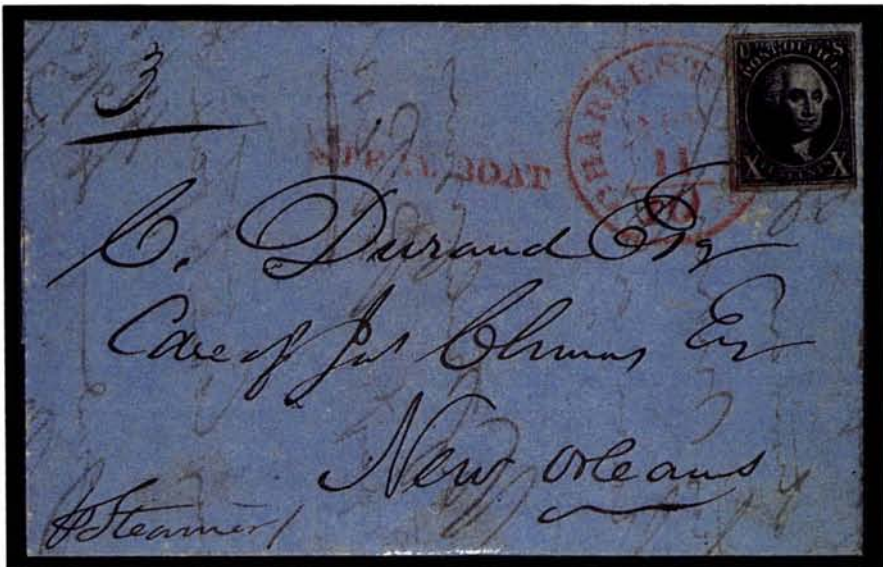 3
STEAM BOAT
CHARLEST
11
POST OFFICE
X X
C. Durand Esq
Care of Jas Esq
New Orleans
p Steamer